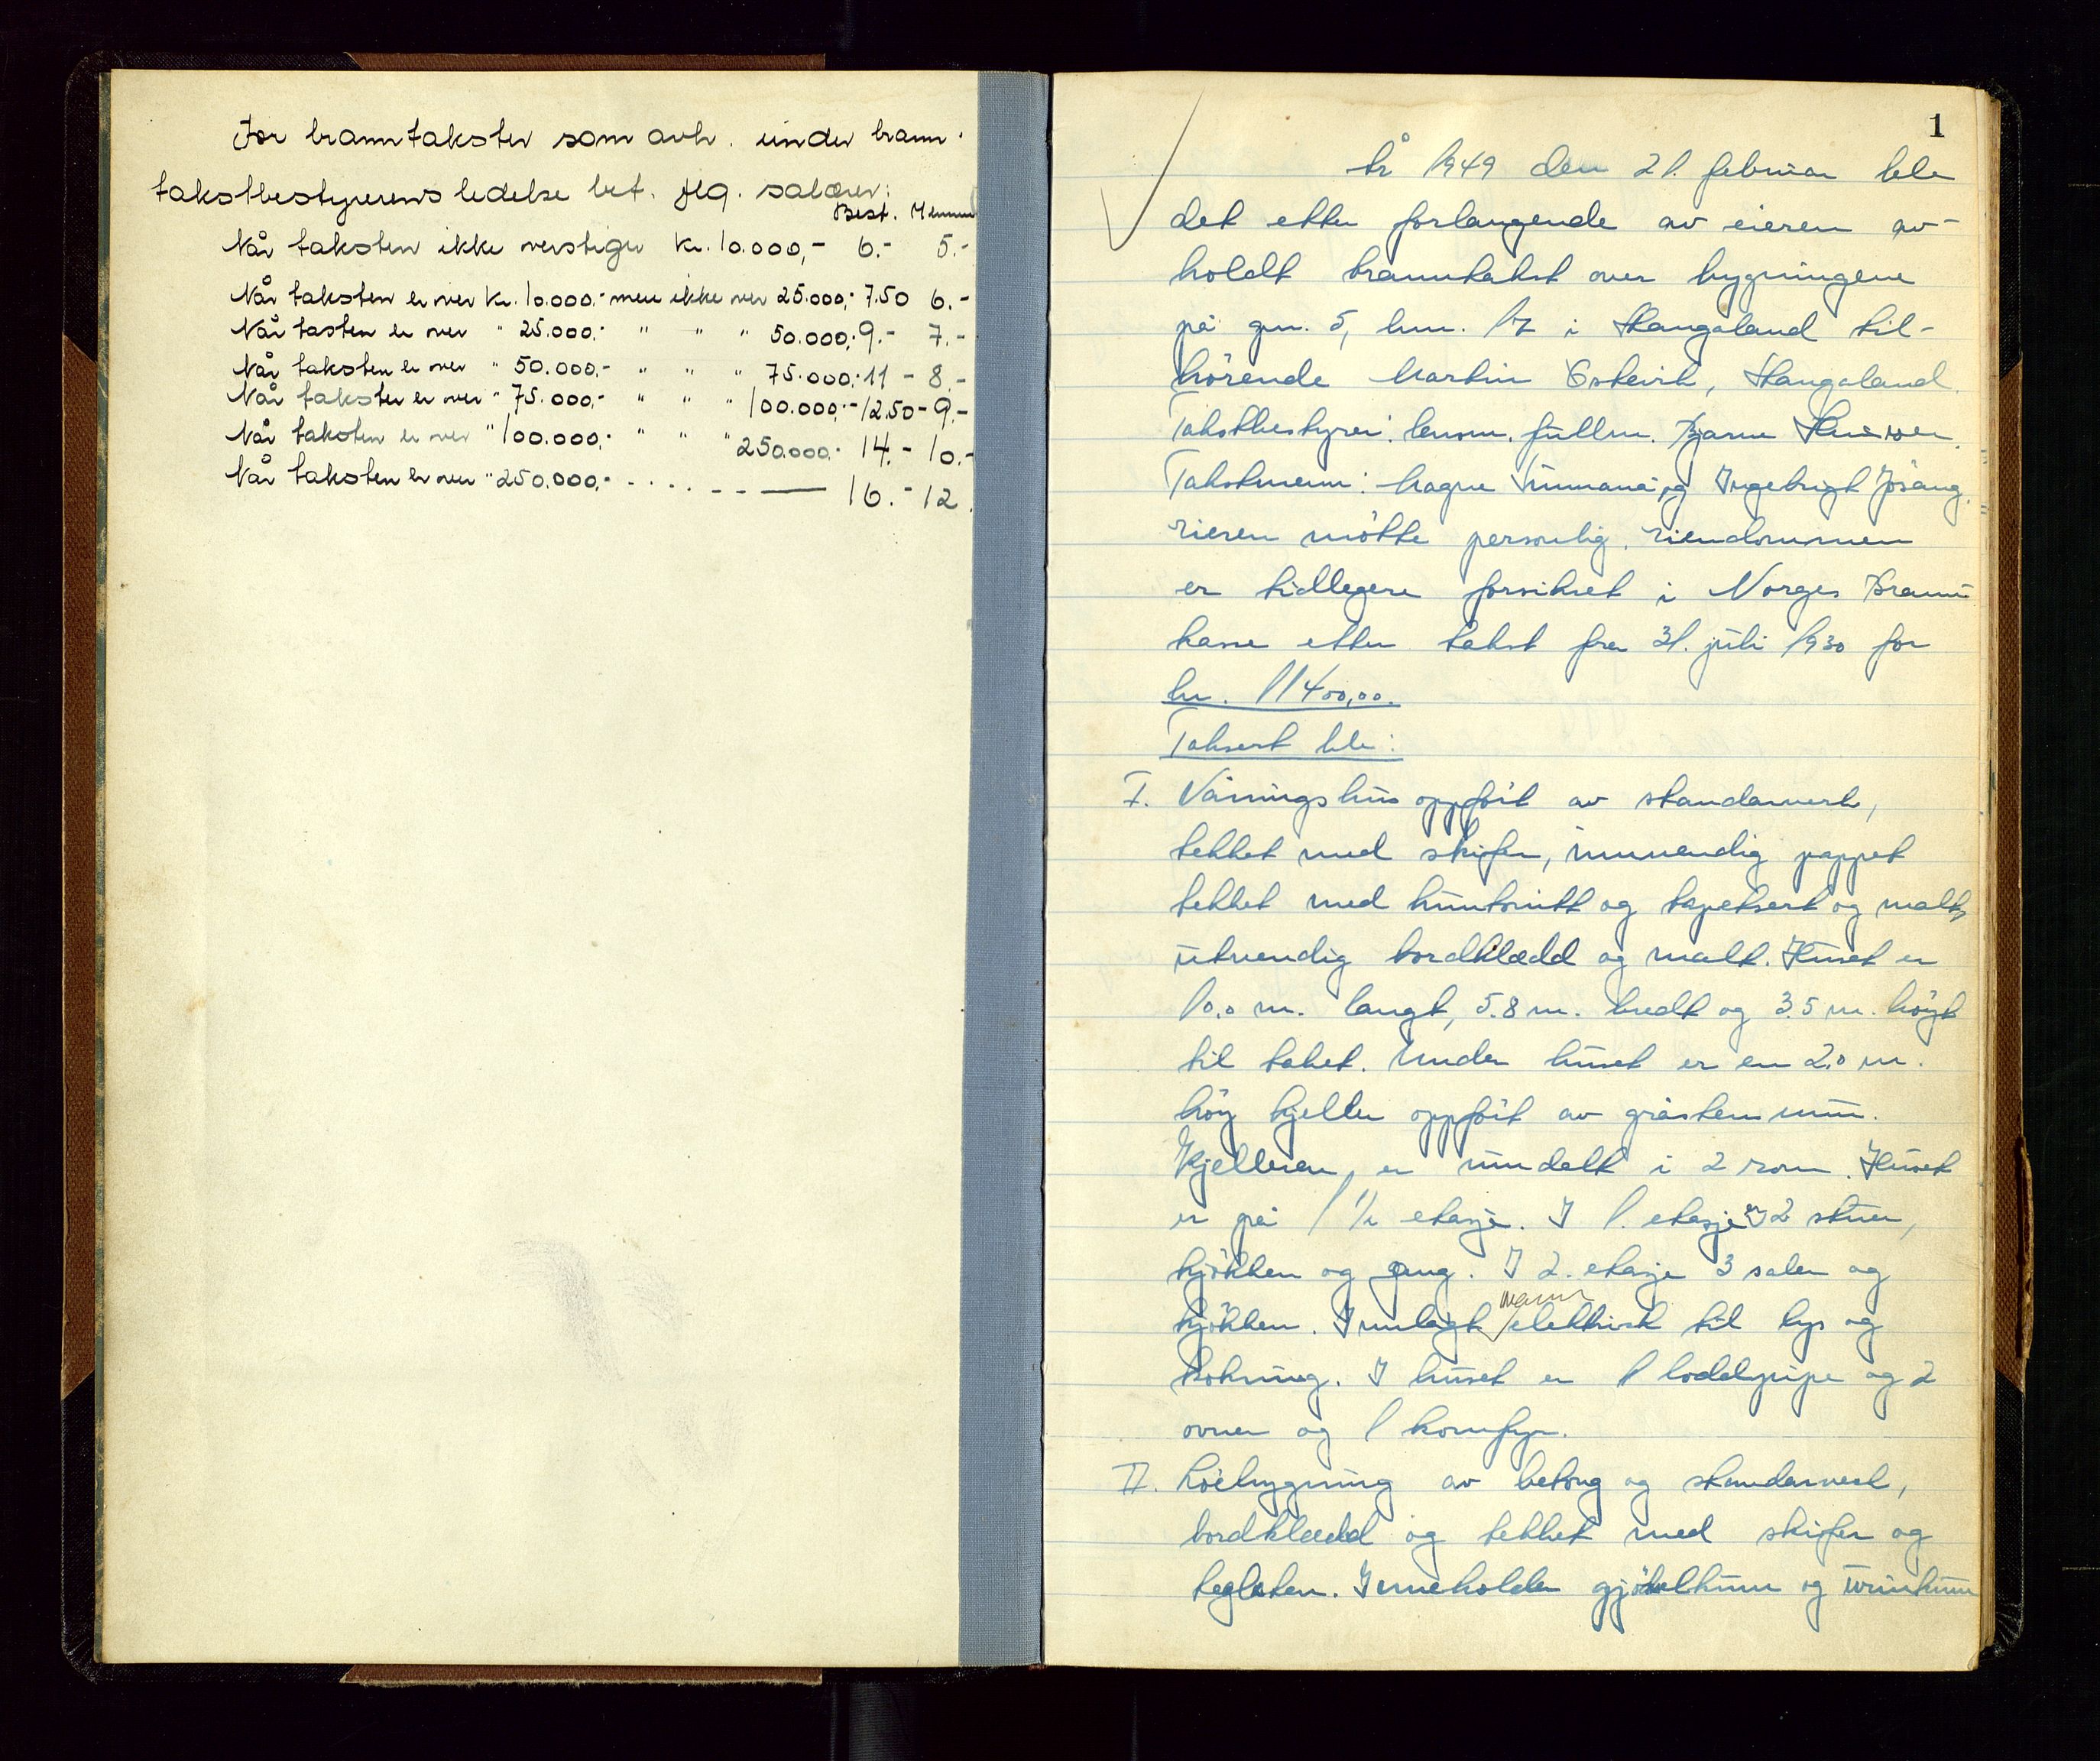 For branntakster som avh. under brann-
takstbestyrerens ledelse bet. flg. salærer:
Best. Menn
Når taksten ikke overstiger kr. 10.000,- 6.- 5.-
Når taksten er over kr. 10.000.- men ikke over 25.000,- 7.50 6.-
Når tasten er over " 25.000.- " " " 50.000,- 9.- 7.-
Når taksten er over " 50.000.- " " " 75.000,- 11 - 8.-
Når taksten er over " 75.000,- " " " 100.000,- - 12.50 - 9.-
Når taksten er over " 100.000,- " " " 250.000.- 14.- 10.-
Når taksten er over " 250.000,- 16.- 12.
1
År 1949 den 21. februar ble
det etter forlangende av eieren av-
holdt branntakst over bygningene
på gnr. 5, bnr. 17 i Stangaland til-
hørende Martin Østvik, Stangaland.
Takstbestyrer: lensm. fullm. Bjarne
Takstmenn: Magne og Ingebrigt Jøsang.
Eieren møtte personlig. Eiendommen
er tidlegere forsikret i Norges Brann-
kasse etter takst fra 31. juli 1930 for
kr. 11400,00.
Taksert ble:
I. Våningshus oppført av standarverk,
tekket med skifer, innvendig pappet
tekket med huntonitt og tapetsert og malt,
utvendig bordklædd og malt. Huset er
10.0 m. langt, 5.8 m. bredt og 3.5 m. høyt
til taket. Under huset er en 2.0 m.
høy kjeller oppført av gråstensmur.
Kjelleren er inndelt i 2 rom. Huset
er på 1 1/2 etasje. I 1. etasje er 2 stuer,
kjøkken og gang. I 2. etasje 3 saler og
kjøkken. Innlagt vann elektrisk til lys og
kokning. I huset er 1 loddpipe og 2
ovner og 1 komfyr.
II. Løebygning av betong og standarverk,
bordklædd og tekket med skifer og
teglsten. Inneholder gjødselkum og urinkum